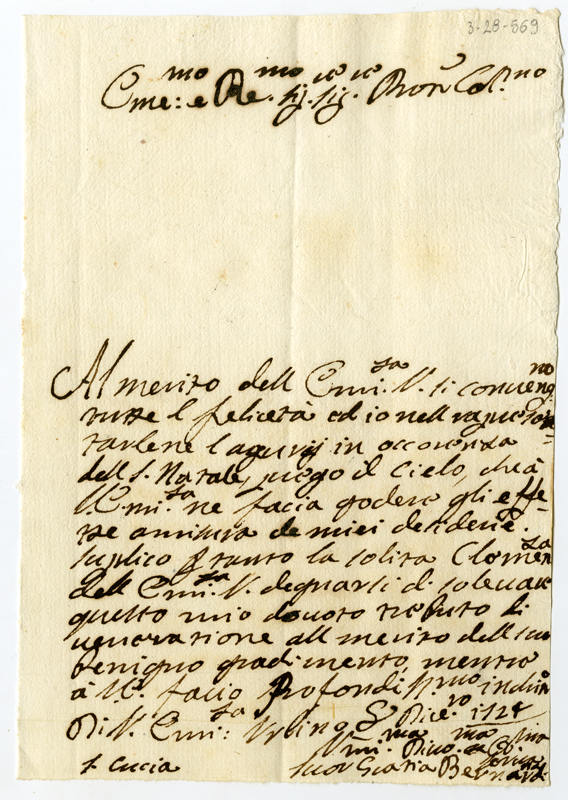 3-28-569
Eme:mo e Re.mo sig.re sig.re Pron Col.mo
Al merito dell Emi.za V. si convengno
tutte l felicità ed io nell rapresen
tarlene l'agurij in occorenza
dell S. Natale, priego il Cielo, che à
V. Emi.za ne facia godere gli effe-
tte a misura de miei desiderie.
suplico p tanto la solita Clemen.za
dell Emi.za V. degnarsi di solevare
questo mio devoto tributo di
venerazione all merito dell suo
benigno gradimento, mentre
à V.E. facio Profondissimo inchino
Di V. Emi:za Urbino 8 Dice.ro 172
Umi.ma Divo.ma Ob.
S. Lucia suor Grazia Bernardi